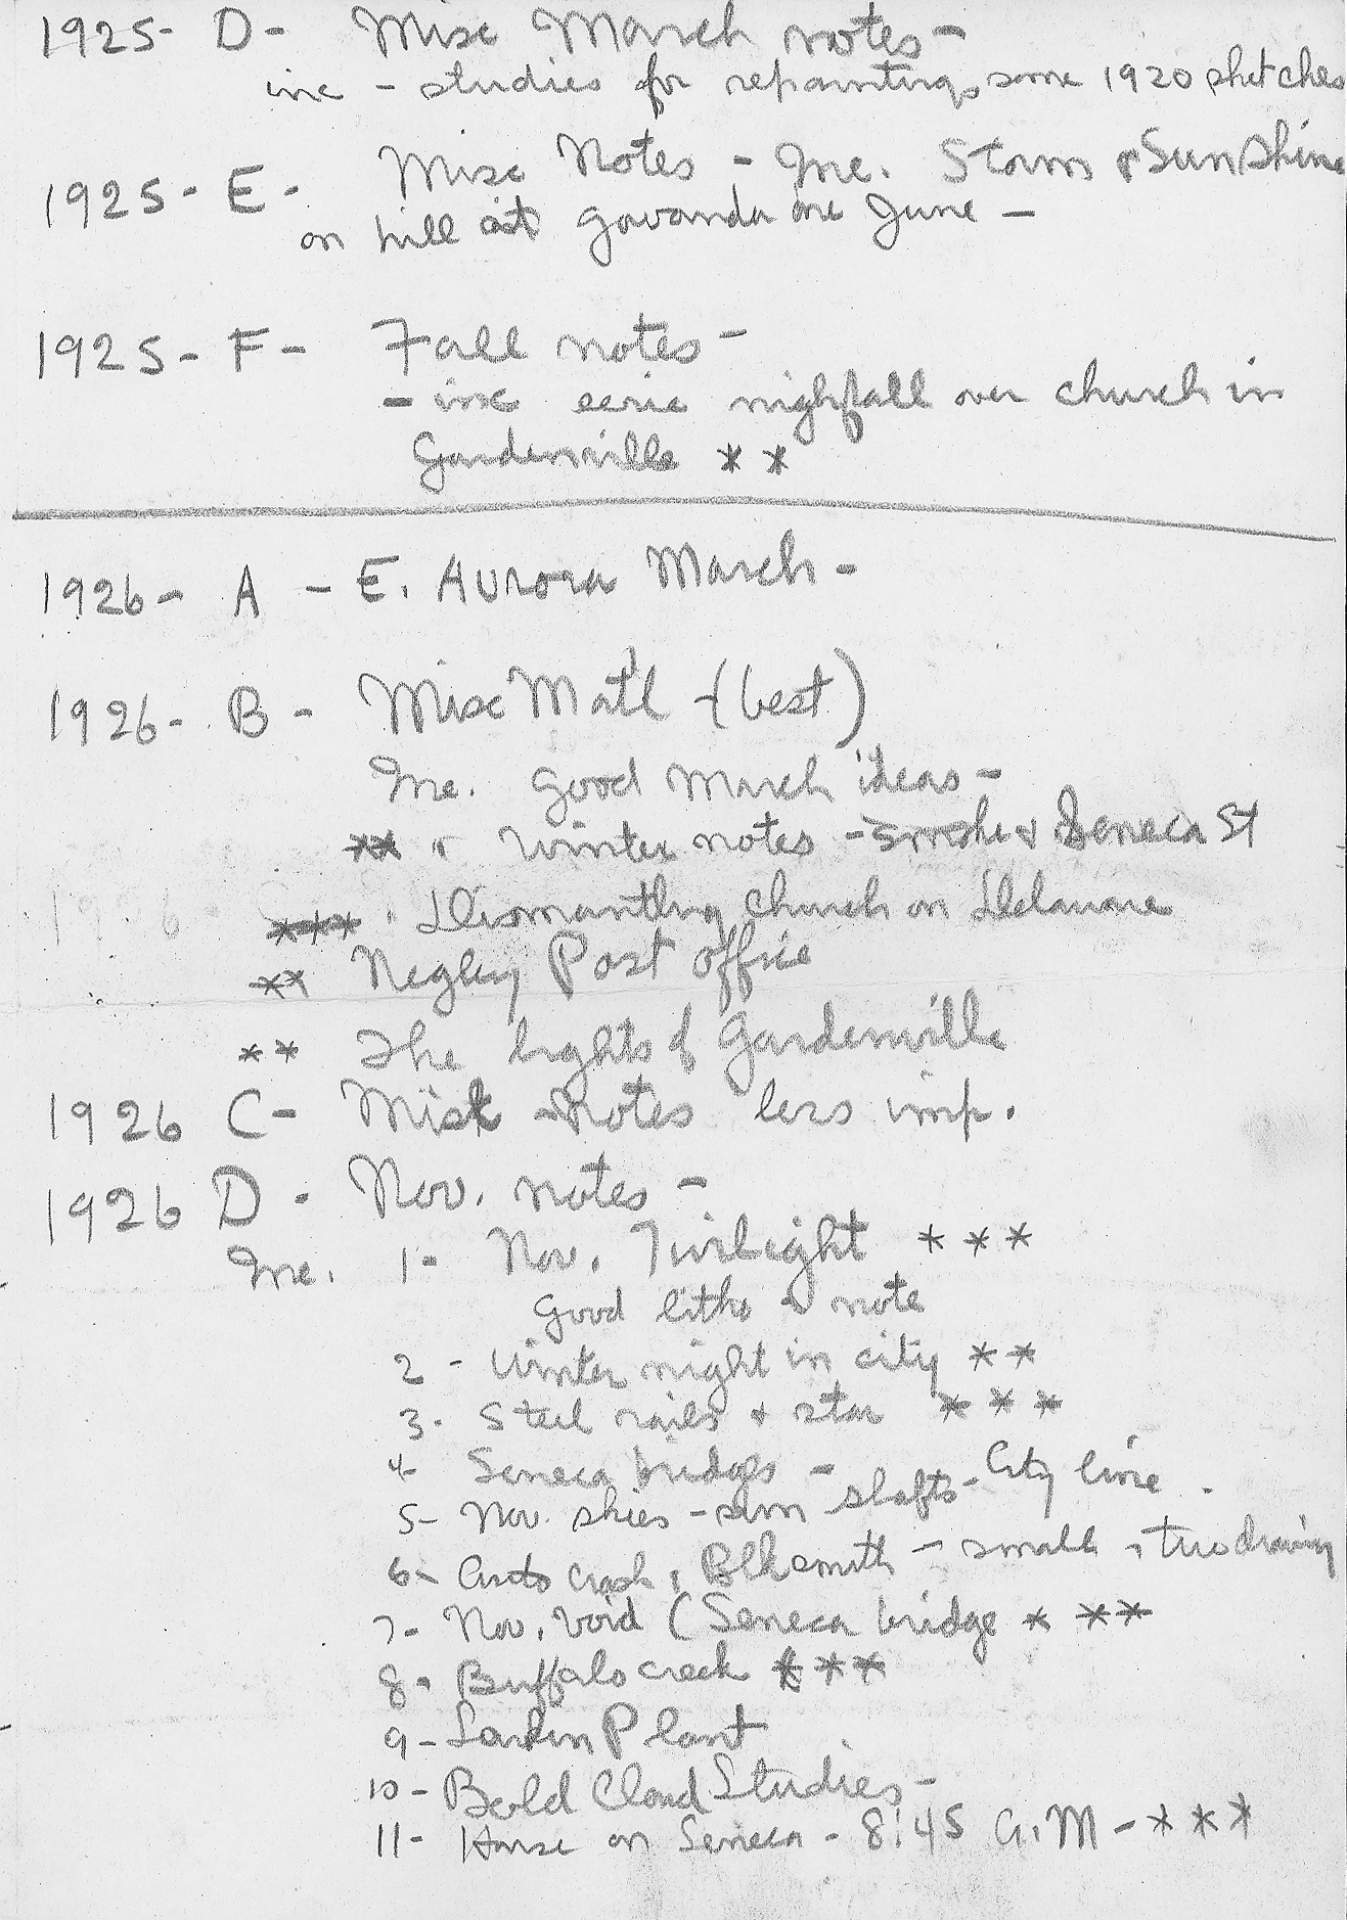 1925- D- Misc March notes-
inc - studies for repainting some 1920 sketches
1925- E- Misc Notes - Inc. Storm & Sunshine
on hill at Gowanda one June -
1925- F- Fall notes-
- inc eerie nightfall over church in
Gardenville **
1926- A - E. Aurora March-
1926- B - Misc Matl - (best)
Inc. Good March ideas-
** " Winter notes - smoke & Seneca St
*** " Dismantling church on Delaware
** Negley Post office
** The lights of Gardenville
1926 C- Misc notes less imp.
1926 D- Nov. notes-
Inc. 1- Nov. Twilight ***
Good litho note
2- Winter night in city **
3- Steel rails & star ***
4- Seneca bridges -
5- Nov. skies - sun shafts - City line.
6- Auto crash, Blksmith - small, two drawing
7- Nov. void (Seneca bridge * **
8- Buffalo creek ***
9- Larkin Plant
10- Bold Cloud Studies-
11- House on Seneca - 8:45 A.M - ***